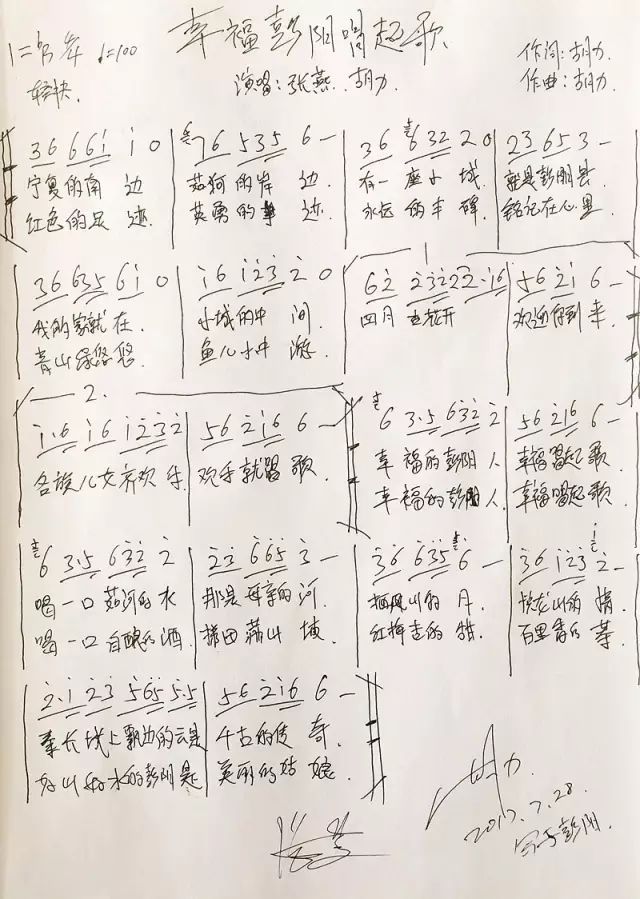 幸福彭阳唱起歌
1=♭B 4/4 ♩=100
轻快.
演唱:张燕.胡力
作词:胡力
作曲:胡力
3 6 6 6 1 1 0 | 7 6 5 3 5 6 — | 3 6 6 3 2 2 0 | 2 3 6 5 3 —
宁夏的南 边 茹河的岸 边 有一座小 城 就是彭阳县
红色的足 迹 英勇的事 迹 永远的丰 碑 铭记在心里
3 6 6 3 5 6 1 0 | 1 6 1 2 3 2 0 | 6 2 2 3 2 2 2·1 6 | 5 6 2 1 6 —
我的家就在. 小城的中 间. 四月 花开 欢迎你到 来.
青山绿悠悠. 鱼儿水中 游.
1. 2.
1·6 1 6 1 2 3 2 | 5 6 2 1 6 6 — | 6 3·5 6 3 2 2 | 5 6 2 1 6 6 —
各族儿女齐欢 乐. 欢乐就唱 歌. 幸 福的彭阳 人 幸福唱起 歌
幸 福的彭阳 人. 幸福唱起 歌
6 3·5 6 3 2 2 | 2 3 6 6 5 3 — | 3 6 6 3 5 6 — | 3 6 1 2 3 2 —
喝 一 口 茹河的 水 那是 母亲的 河. 栖凤山的 月. 悦龙山的 情
喝 一 口 自酿的 酒. 梯田 满山 埂 红梅杏的 甜. 百里
2·1 2 3 5 6 5 5·5 | 5 6 2 1 6 6 —
秦长城上飘边的云是 千古的传 奇.
好山好水的彭阳是 美丽的姑 娘
胡力.
2017.7.28
写于彭阳.